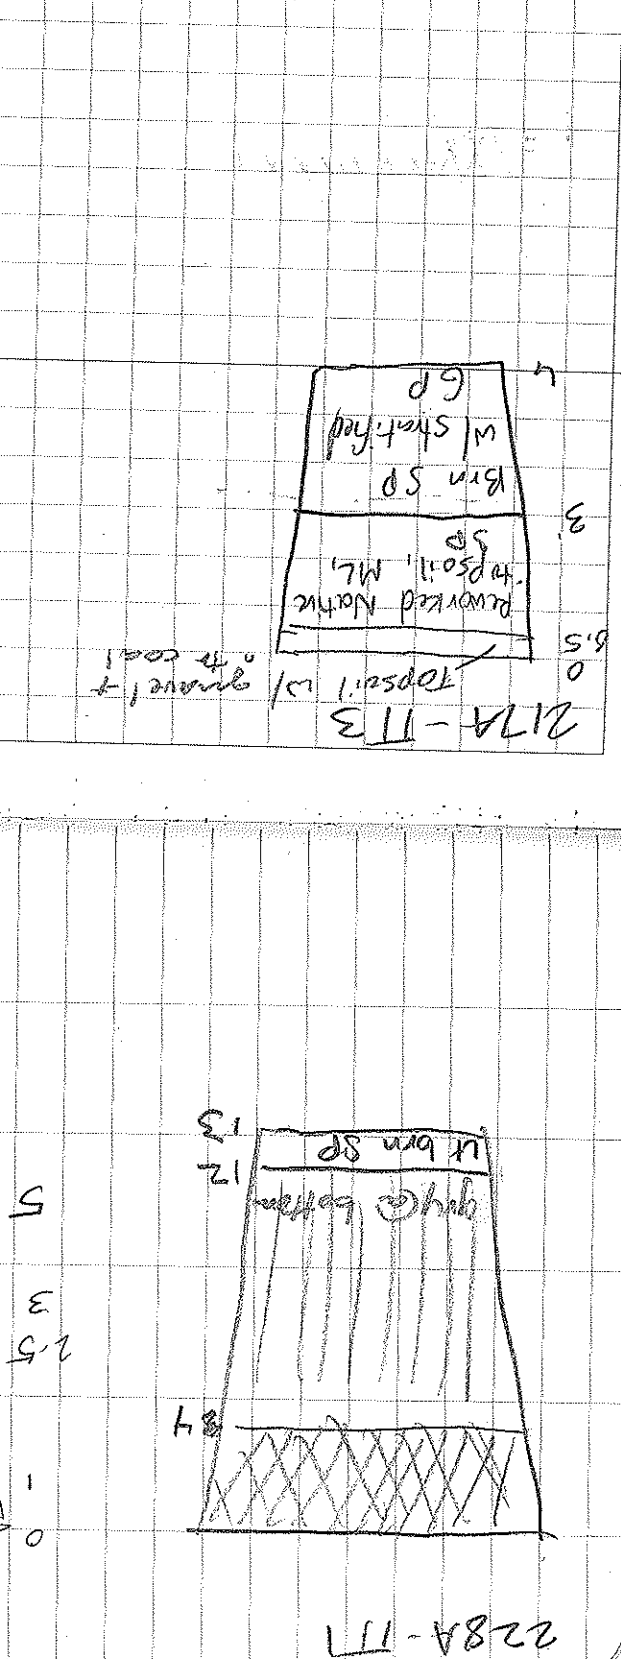 228A-TT1
0
1
4
2.5
3
5
gry @ bottom
12
Lt brn SP
13
217A-TT3
Topsoil w/ gravel +
tr coal
0
0.5
Reworked Native
topsoil, ML,
SP
3
Brn SP
w/ stratified
GP
4